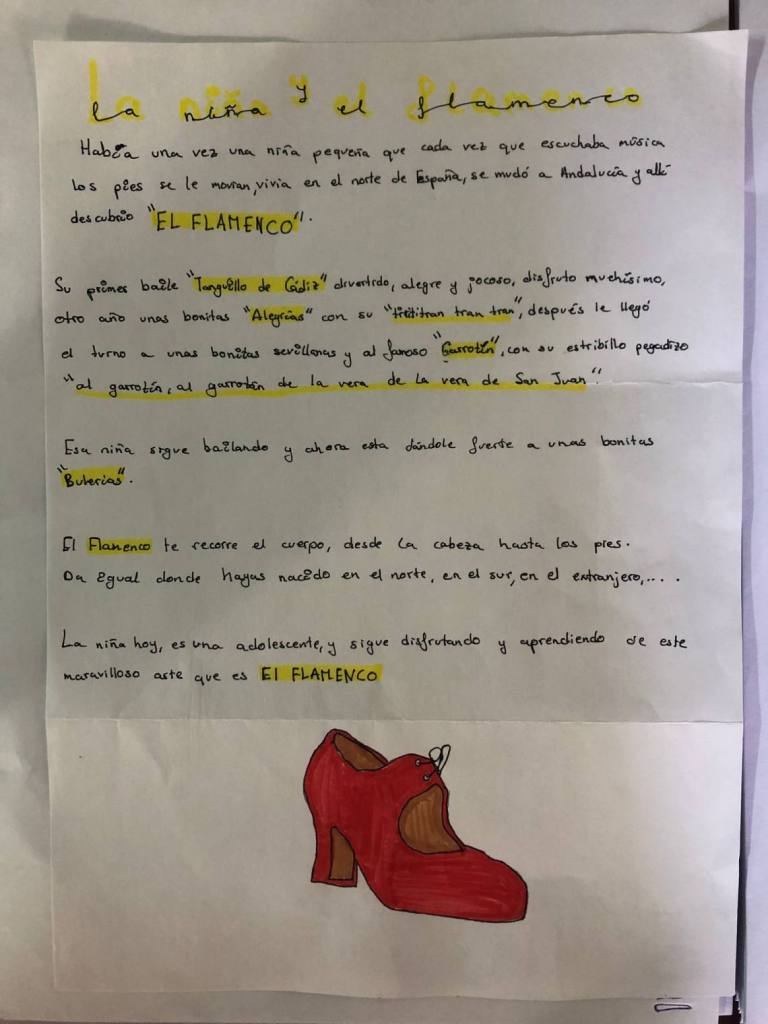 La niña y el flamenco
Había una vez una niña pequeña que cada vez que escuchaba música
los pies se le movían, vivia en el norte de España, se mudó a Andalucía y allí
descubrio "EL FLAMENCO".
Su primer baile "Tanguillo de Cádiz" divertido, alegre y jocoso, disfruto muchísimo,
otro año unas bonitas "Alegrías" con su "tirititran tran tran", después le llegó
el turno a unas bonitas sevillanas y al famoso "Garrotín", con su estribillo pegadizo
"al garrotín, al garrotín de la vera de la vera de San Juan".
Esa niña sigue bailando y ahora esta dándole fuerte a unas bonitas
"Bulerias".
El Flamenco te recorre el cuerpo, desde la cabeza hasta los pies.
Da igual donde hayas nacido en el norte, en el sur, en el extranjero,....
La niña hoy, es una adolescente, y sigue disfrutando y aprendiendo de este
maravilloso arte que es El FLAMENCO